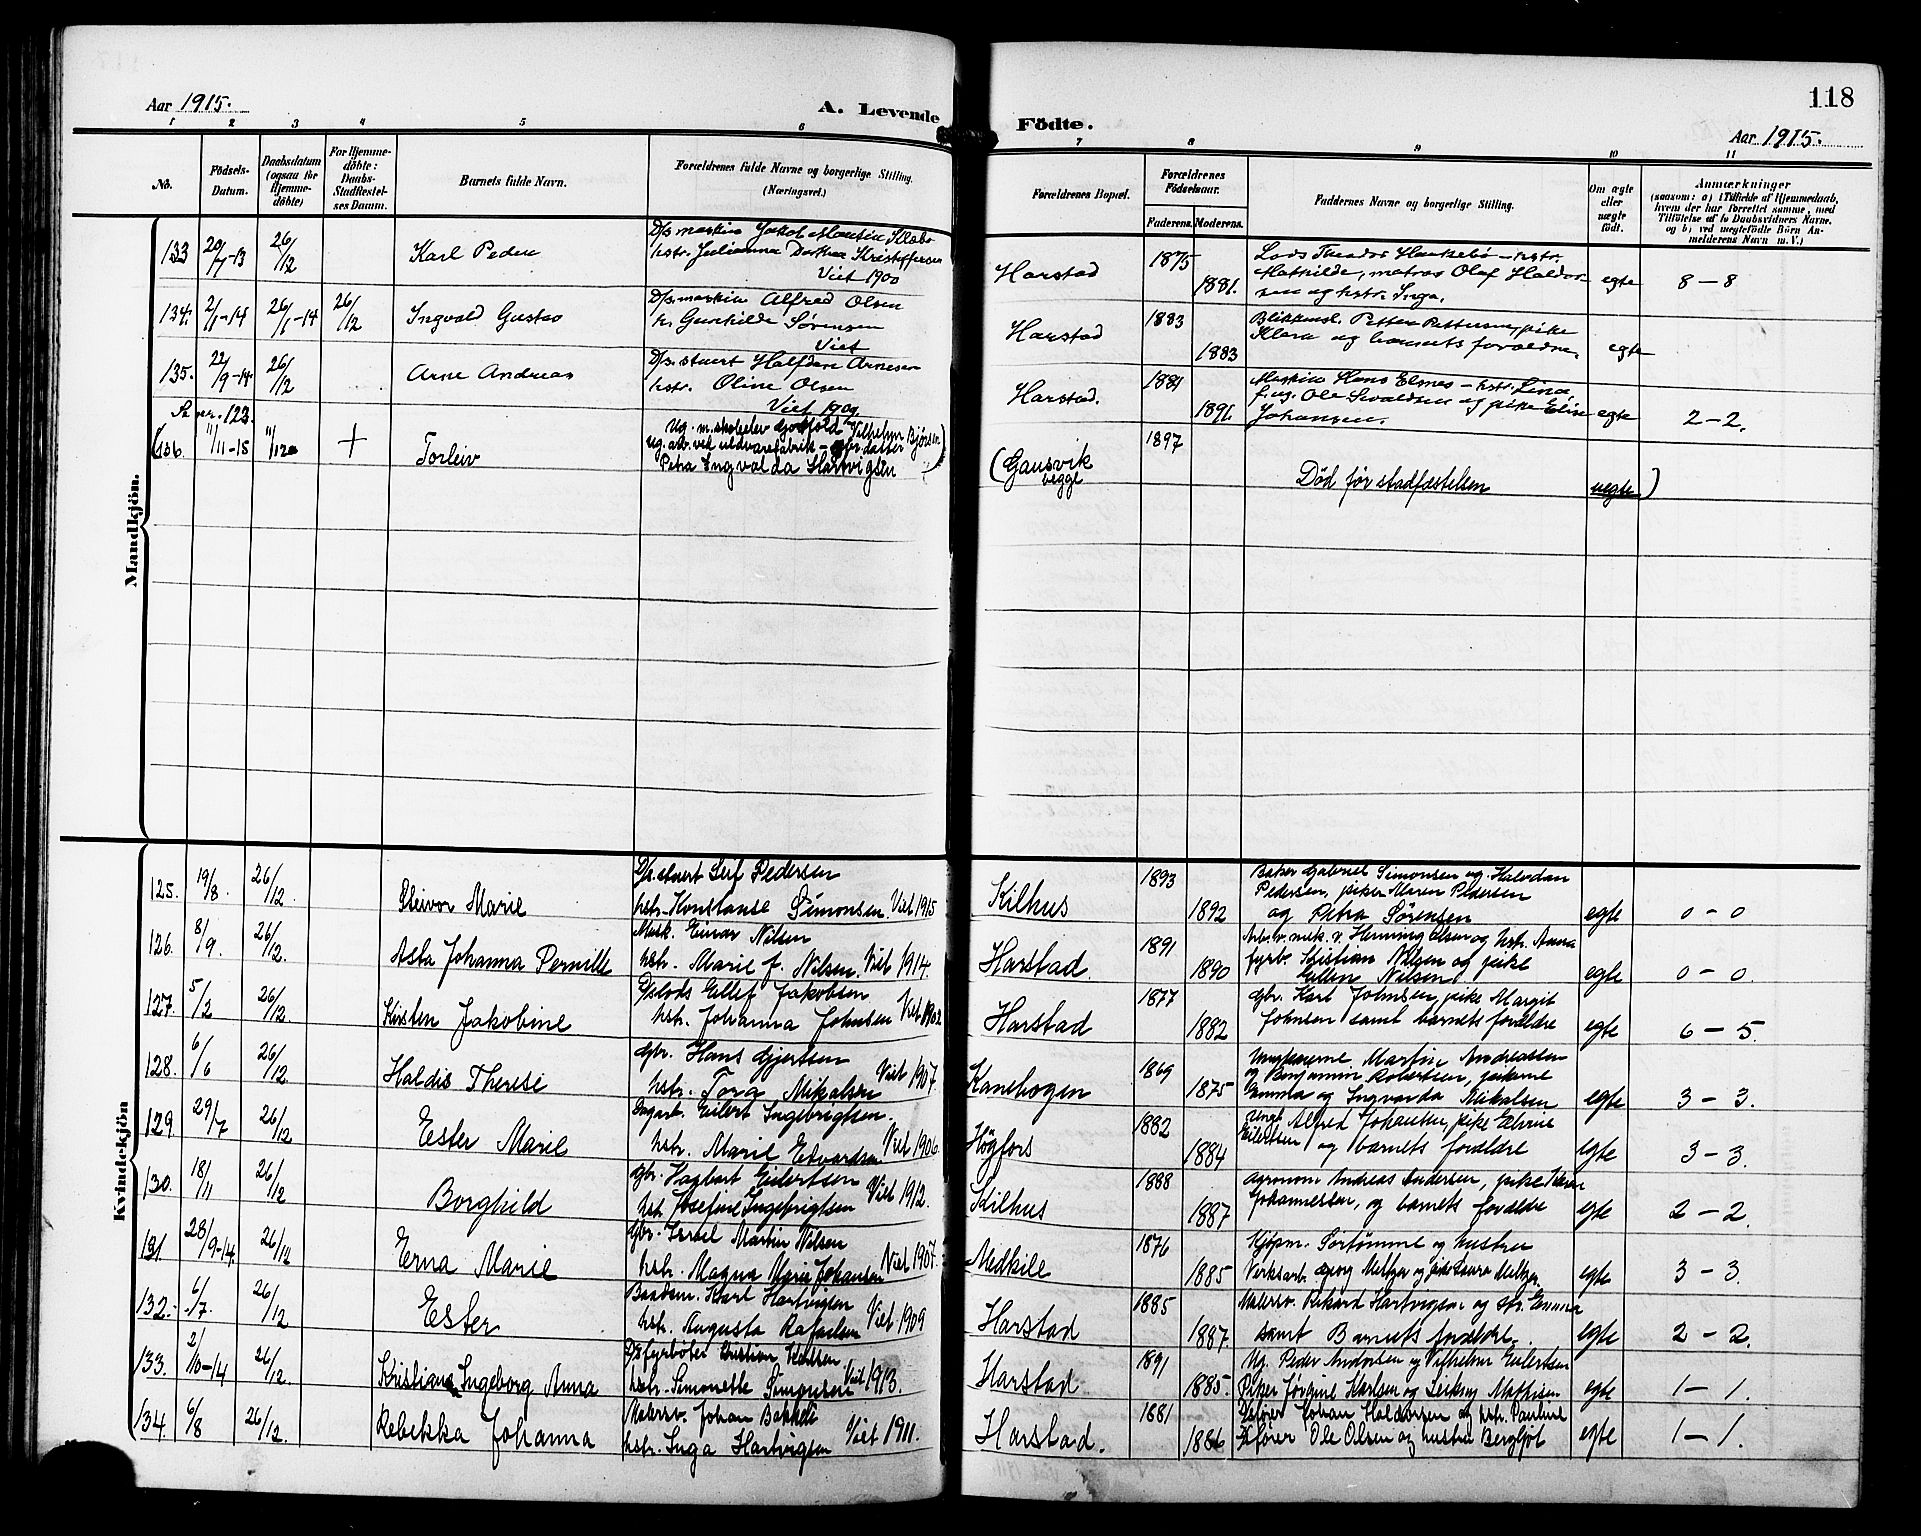 118
Aar 1915.
A. Levende
Födte.
Aar 1915.
1 2 3 4 5 6 7 8 9 10 11
No.
Födsels-
Datum.
Daabsdatum
(ogsaa for
Hjemme-
döbte)
For Hjemme-
döbte:
Daabs-
Stadfæstel-
ses Datum.
Barnets fulde Navn.
Forældrenes fulde Navne og borgerlige Stilling.
(Næringsvei.)
Forældrenes Bopæl.
Forældrenes
Födselsaar.
Faderens. Moderens.
Faddernes Navne og borgerlige Stilling.
Om ægte
eller
uægte
født.
Anmærkninger
(saasom: a) i Tilfælde af Hjemmedaab,
hvem der har forrettet samme, med
Tilföielse af to Daabsvidners Navne,
og b) ved uegtefödte Börn An-
melderens Navn m. V.)
Mandkjön.
133 20/7-13 26/12 Karl Peder
hstr. Julianna Kristoffersen
Viet 1900
Harstad 1875 1881. egte 8 - 8
134. 2/1-14 26/1-14 26/12 Ingvald Gustav
D/s. maskin Alfred Olsen
h. Gunhilde Sørensen
Viet
Harstad 1883 1883
Klara og barnets forældre. egte
135. 22/9-14 26/12 Arne Andreas
D/s. stuert Halfdan Arnesen
hstr. Oline Olsen
Viet 1909.
Harstad. 1881 1891.
Johansen. egte 2 - 2.
Se nr. 123.
(136. 11/11-15 11/12 + Torleiv
Petra Ingvalda Hartvigsen
(Gausvik
begge
1897
Død før stadfæstelsen uegte )
Kvindekjön
125. 19/8. 26/12. Eleivor Marie
D/s. stuert Leif Pedersen
hstr. Konstanse Simonsen Viet 1915
Kilhus 1893 1892
Baker Gabriel Simonsen og Halvdan
Pedersen, piker Maren Pedersen
og Petra Sørensen egte 0 - 0
126. 8/9. 26/12. Asta Johanna Pernille
Mask. Einar Nilsen
hstr. Marie f. Nilsen. Viet 1914.
Harstad. 1891 1890
fyrb. Kristian Nilsen og pike
Nilsen egte 0 - 0.
127. 5/2 26/12 Kirsten Jakobine
D/slods Ellef Jakobsen
hstr. Johanna Johnsen Viet 1902
Harstad 1877 1882
gbr. Karl Johnsen, pike Margit
Johnsen samt barnets forældre egte 6 - 5.
128. 6/6 26/12 Haldis Therese
gbr. Hans Gjertsen
hstr. Tora Mikalsen Viet 1907.
Kanebogen 1869 1875
Ungkarerne Martin Andreassen
og Benjamin Robertsen, pikerne
Emma og Ingvarda Mikalsen egte 3 - 3.
129 29/7 26/12 Ester Marie
Eilert Ingebrigtsen.
hstr. Marie Edvardsen Viet 1906.
Högfors 1882 1884
ungk. Alfred Johansen, pike Elvine
Eilertsen og barnets forældre egte 3 - 3.
130. 18/11 26/12 Borghild
gbr. Hagbart Eilertsen
hst. Josefine Ingebrigtsen Viet 1912.
Kilhus 1888 1887
agronom Andreas Andersen, pike
Johannessen, og barnets forældre egte 2 - 2.
131 28/9-14. 26/12 Erna Marie
gbr. Israel Martin Nilsen
hstr. Magna Marie Johansen Viet 1907.
Medkile 1876 1885
Kjøpm. Sørtømme og hustru
Verksarb. Georg Meltzer og pike Laura Meltzer. egte 3 - 3.
132. 6/7. 26/12 Ester
Baadsm. Karl Hartvigsen
hstr. Augusta Rafaelsen Viet 1909
Harstad 1885 1887.
Malersv. Rikard Hartvigsen og Emma
samt Barnets forældre. egte 2 - 2.
133. 2/10-14 26/12. Kristiana Ingeborg Anna
D/sfyrbøter Kristian Karlsen
hstr. Simonette Simonsen Viet 1913.
Harstad 1891 1885.
Ug. Peder Andorsen og Vilhelm Eilertsen
Piker Jørgine Karlsen og Mathisen egte 1 - 1.
134. 6/8 26/12. Rebekka Johanna
Malersv. Johan Bakkeli
hstr. Inga Hartvigsen Viet 1911.
Harstad. 1881 1886
Johan Haldorsen og hstr. Pauline
Ole Olsen og hustru Bergljot egte 1 - 1.